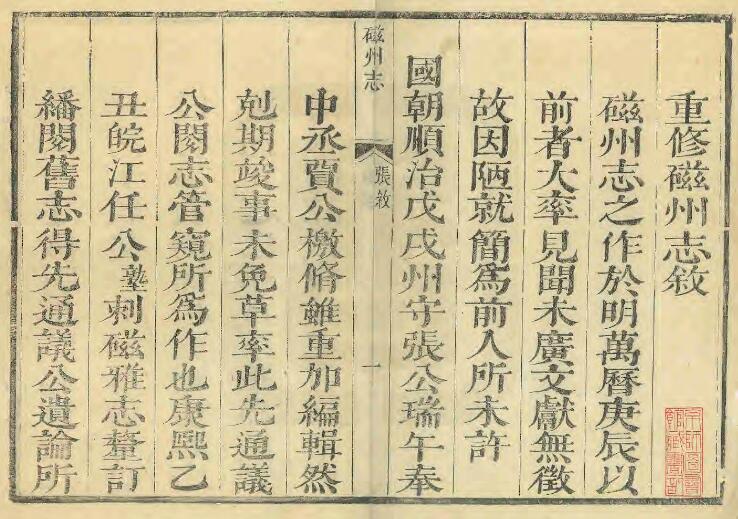 重修磁州志敘
磁州志之作於明萬曆庚辰以
前者大率見聞未廣文獻無徵
故因陋就簡爲前人所未許
國朝順治戊戌州守張公瑞午奉
磁州志
張敘
一
中丞賈公檄脩雖重加編輯然
剋期竣事未免草率此先通議
公閱志管窺所爲作也康熙乙
丑皖江任公塾刺磁雅志釐訂
繙閱舊志得先通議公遺論所